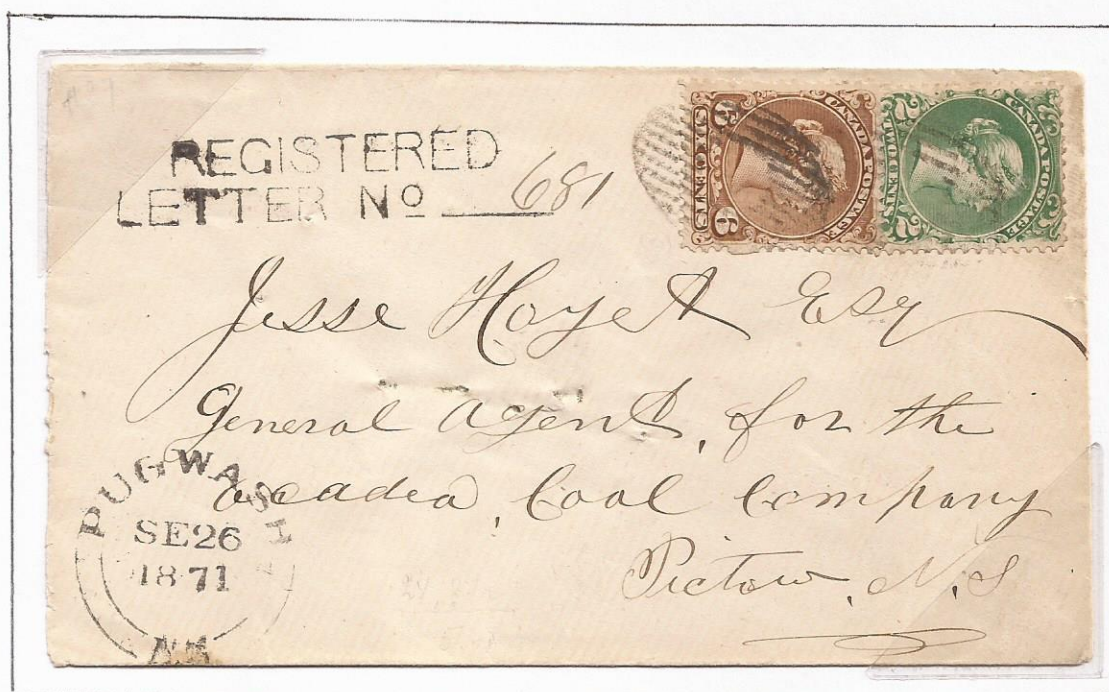 REGISTERED
LETTER No 681
SIX CENTS
CANADA POSTAGE
6
6
CANADA POSTAGE
2
2
Jesse Hoyet Esq
General Agent, for the
Acadea, Coal Company
Pictow, N.S
PUGWASH
SE26
1871
N.S